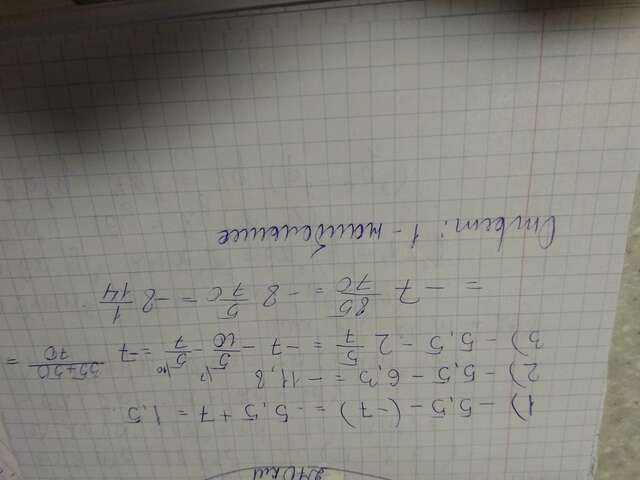 270 км
1) -5,5 - (-7) = -5,5 + 7 = 1,5
2) -5,5 - 6,3 = -11,8
3) -5,5 - 2 5/7 = -7 - 5/10 - 5/7 = -7 (35+50)/70 =
= -7 85/70 = -8 5/70 = -8 1/14
Ответ: 1 - наибольшее